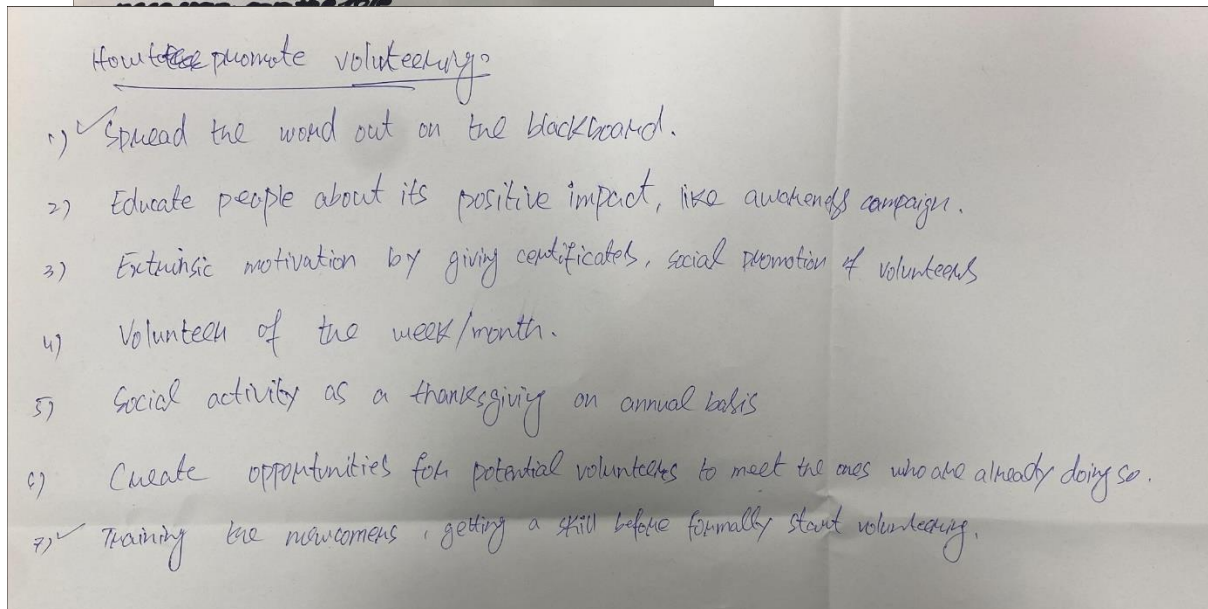 How to promote volunteering?
1) ✓ Spread the word out on the blackboard.
2) Educate people about its positive impact, like awareness campaign.
3) Extrinsic motivation by giving certificates, social promotion of volunteers
4) Volunteer of the week/month.
5) Social activity as a thanksgiving on annual basis
6) Create opportunities for potential volunteers to meet the ones who are already doing so.
7) ✓ Training the newcomers, getting a skill before formally start volunteering.